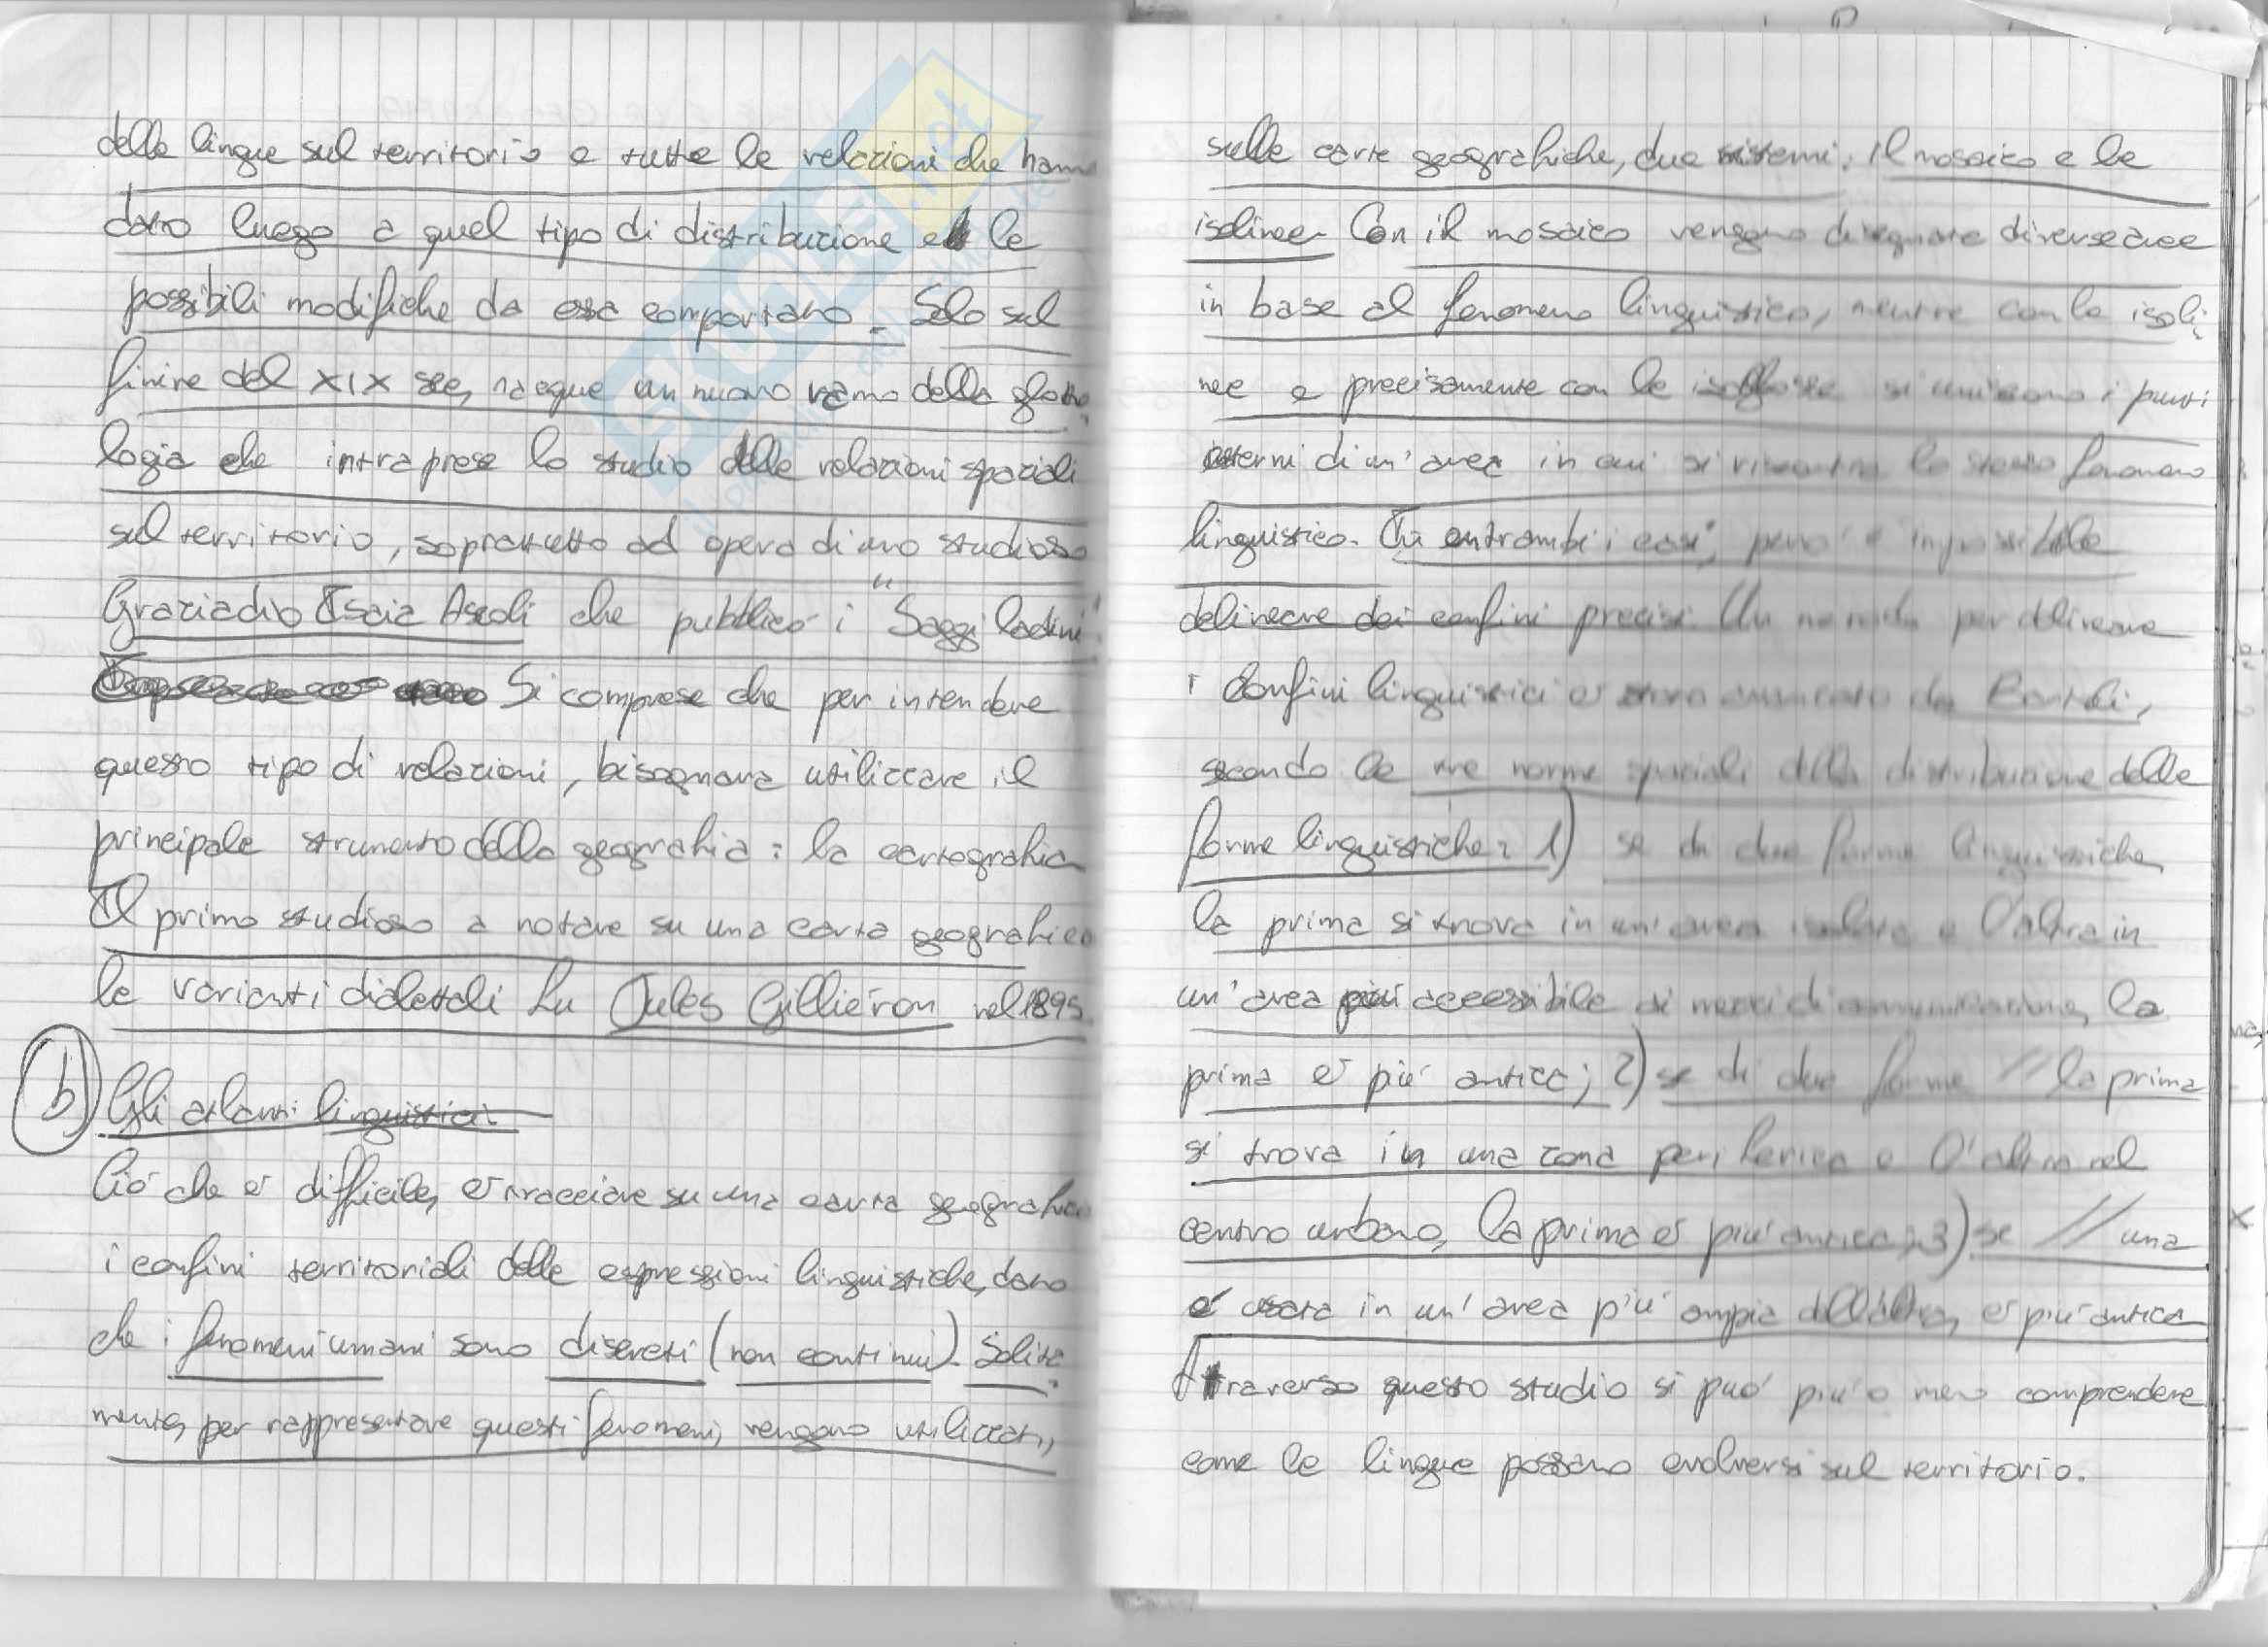 delle lingue sul territorio e tutte le relazioni che hanno
dato luogo a quel tipo di distribuzione e le
possibili modifiche da essa comportano. Solo sul
finire del XIX sec, nacque un nuovo ramo della glotto
logia che intraprese lo studio delle relazioni spaziali
sul territorio, soprattutto ad opera di uno studioso
Graziadio Isaia Ascoli che pubblicò i "Saggi ladini"
Si comprese che per intendere
questo tipo di relazioni, bisognava utilizzare il
principale strumento della geografia: la cartografia
Il primo studioso a notare su una carta geografica
le varianti dialettali fu Jules Gilliéron nel 1895.
b) Gli atlanti linguistici
Ciò che è difficile, è tracciare su una carta geografica
i confini territoriali delle espressioni linguistiche, dato
che i fenomeni umani sono discreti (non continui). Solita
mente, per rappresentare questi fenomeni, vengono utilizzati,
sulle carte geografiche, due sistemi: il mosaico e le
isolinee. Con il mosaico vengono disegnate diverse aree
in base al fenomeno linguistico, mentre con le isoli
nee e precisamente con le isoglosse si uniscono i punti
esterni di un'area in cui si riscontra lo stesso fenomeno
linguistico. In entrambi i casi, però è impossibile
delineare dei confini precisi. Un metodo per delineare
i confini linguistici è stato enunciato da Bartoli,
secondo le tre norme spaziali della distribuzione delle
forme linguistiche: 1) se di due forme linguistiche,
la prima si trova in un'area isolata e l'altra in
un'area più accessibile ai mezzi di comunicazione, la
prima è più antica; 2) se di due forme // la prima
si trova in una zona periferica e l'altra nel
centro urbano, la prima è più antica; 3) se // una
è usata in un'area più ampia dell'altra, è più antica
Attraverso questo studio si può più o meno comprendere
come le lingue possano evolversi sul territorio.